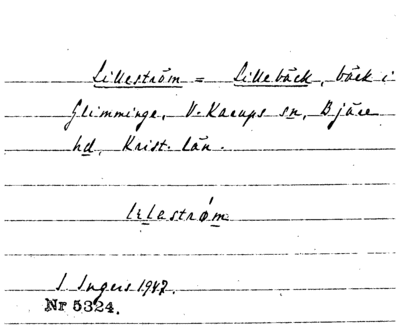 Lilleström = Lillebäck, bäck i
Glimminge, V. Karups sn, Bjäre
hd, Krist. län.
lelaström
I Ingers 1947.
Nr 5324.